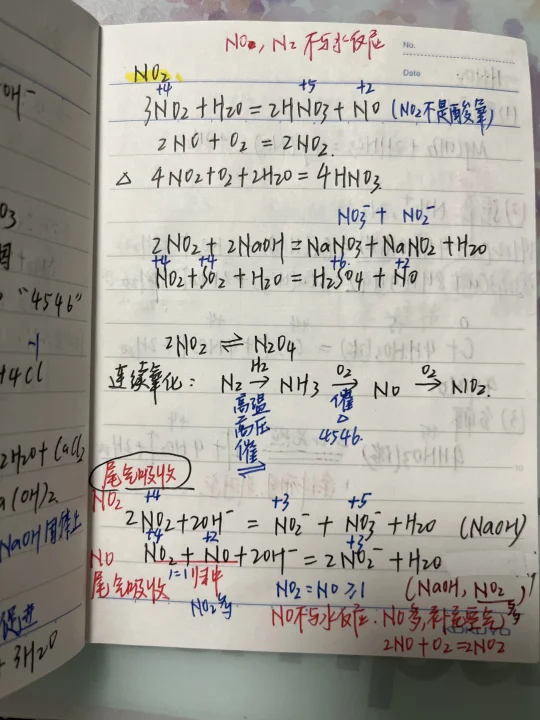 NO, N2 不与水反应
No.
Date
NO2
+4 +5 +2
3NO2 + H2O = 2HNO3 + NO (NO2不是酸氧)
2NO + O2 = 2NO2.
△ 4NO2 + O2 + 2H2O = 4HNO3
NO3⁻ + NO2⁻
2NO2 + 2NaOH = NaNO3 + NaNO2 + H2O
+4 +4 +6 +2
NO2 + SO2 + H2O = H2SO4 + NO
2NO2 ⇌ N2O4
连续氧化: N2 →(H2) NH3 →(O2) NO →(O2) NO2.
高温 催
高压 △
催 4546.
⇌
尾气吸收
NO2 +4 +3 +5
2NO2 + 2OH⁻ = NO2⁻ + NO3⁻ + H2O (NaOH)
+4 +2 +3
NO NO2 + NO + 2OH⁻ = 2NO2⁻ + H2O
尾气吸收 1=1 归中 NO2=NO ≥1 (NaOH, NO2)
NO2多 NO不与水反应. NO多,补充空气
KOKUYO
2NO + O2 = 2NO2
OH⁻
O3
"4546"
-1
+4Cl
2H2O + CaCl2
a(OH)2
NaOH固体上
促进
+ 3H2O